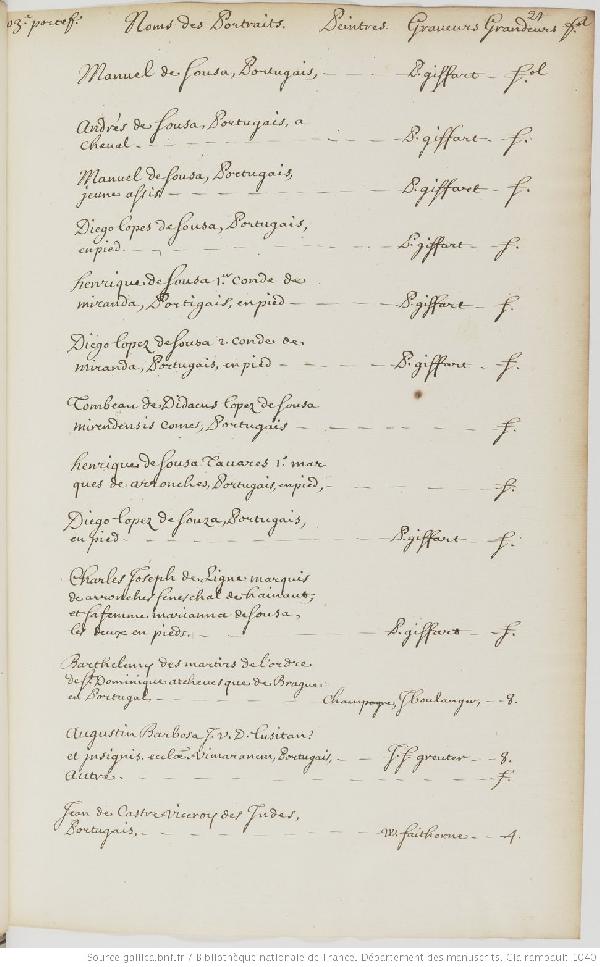 03.e portef. Noms des Portraits. Peintres. Graveurs Grandeurs f.ol
24
Manuel de Sousa, Portugais, — P. giffart — f.ol
Andrés de Sousa, Portugais, a
cheval — P. giffart — f.
Manuel de Sousa, Portugais,
jeune assis — P. giffart — f.
Diego lopes de Sousa, Portugais,
en pied — P. giffart — f.
henrique de Sousa 1.er conde de
miranda, Portigais, en pied — P. giffart — f.
Diego lopez de Sousa 2. conde de
miranda, Portugais, en pied — P. giffart — f.
Tombeau de Didacus lopez de Sousa
mirendensis comes, Portugais — f.
henrique de Sousa Tauares 1.r mar
ques de arronches, Portugais, en pied, — f.
Diego lopez de Souza, Portugais,
en pied — P. giffart — f.
Charles Joseph de Ligne marquis
de arronches seneschal de hainaut,
et sa femme marianna de Sousa,
les deux en pieds. — P. giffart — f.
Barthelemy des martirs de l'ordre
de S.t Dominique archevesque de Brague
en Portugal — Champagne, J. boulanger, — 8.
Augustin Barbosa J. V. D. Lusitan.
et Insignis. eccl.æ Vimaranen, Portugais, — J. f. greuter — 8.
Autre. — f.
Jean de Castre Viceroy des Indes,
Portugais, — W. faithorne — 4.
Source gallica.bnf.fr / Bibliothèque nationale de France. Département des manuscrits. Clairambault 1040